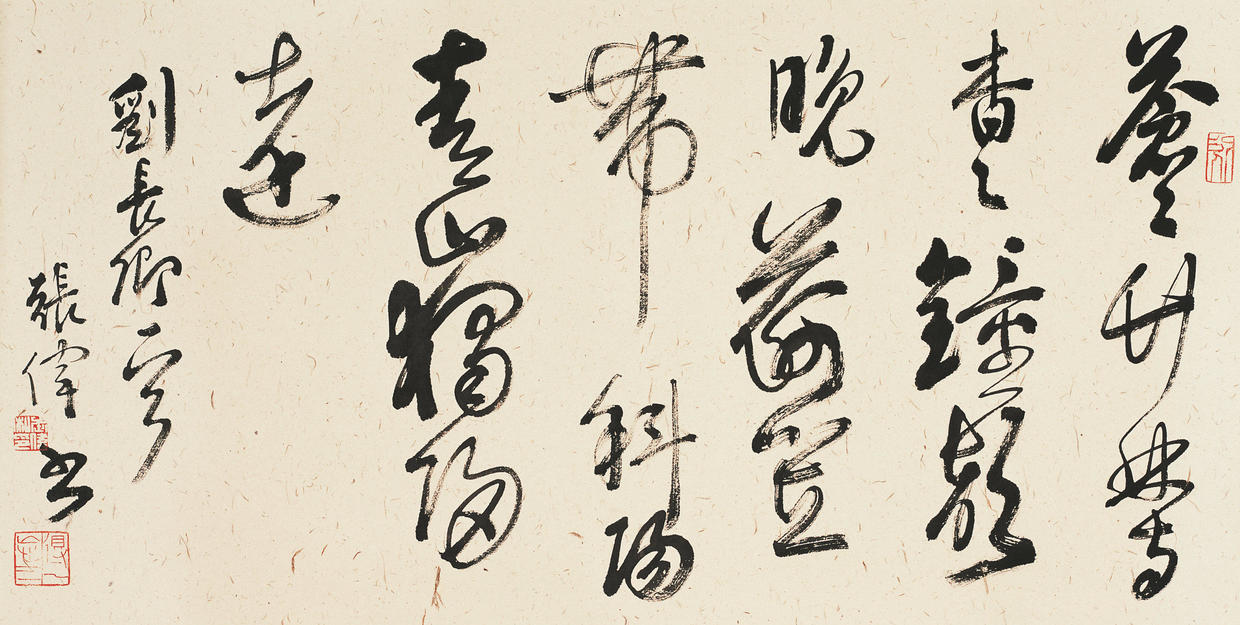 蒼々竹林寺
杳々鐘聲
晚荷笠
帶斜陽
青山獨歸
遠
劉長卿
張偉書